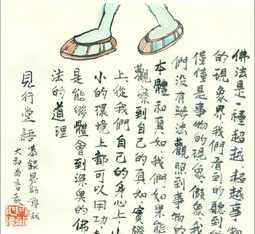 佛法是一種超越超越事物
的現象界我們看到的聽到
僅僅是事物的現象假象我
們沒有辦法觀照到事物的
本體和真佛我們如果能
觀察到自己的真如實
上從我們自己的身心上小
小的環境上都可以用功
是能夠體會到深奧的佛
法的道理
見行堂語